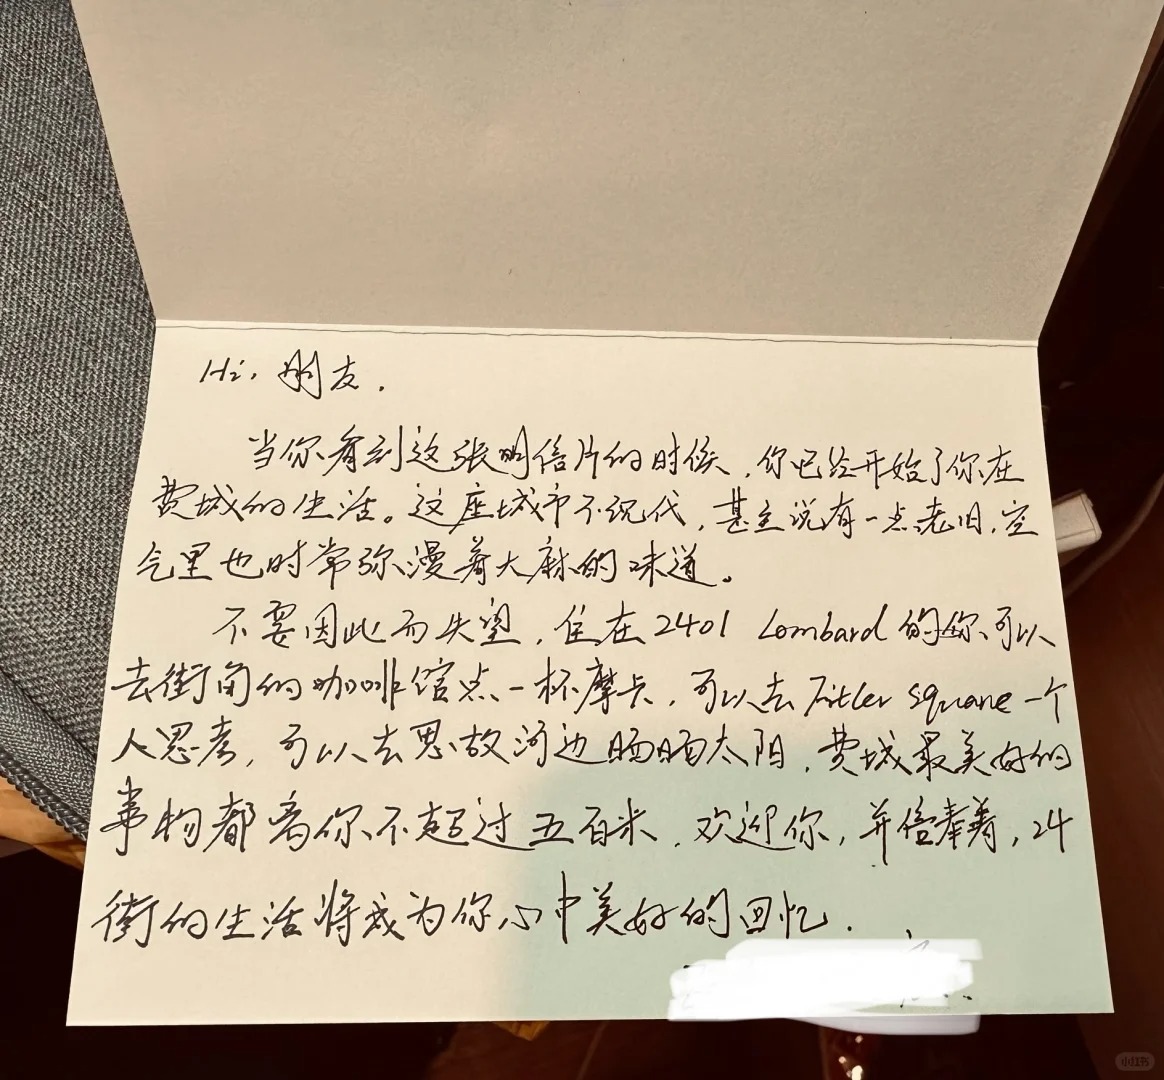 Hi, 朋友.
当你看到这张明信片的时候, 你已经开始了你在
费城的生活。这座城市不现代, 甚至说有一点老旧, 空
气里也时常弥漫着大麻的味道。
不要因此而失望, 住在 2401 Lombard 的你可以
去街角的咖啡馆点一杯摩卡, 可以去 Fitler Square 一个
人思考, 可以去思故河边晒晒太阳, 费城最美好的
事物都离你不超过五百米. 欢迎你, 并信奉着, 24
街的生活将成为你心中美好的回忆.
小红书